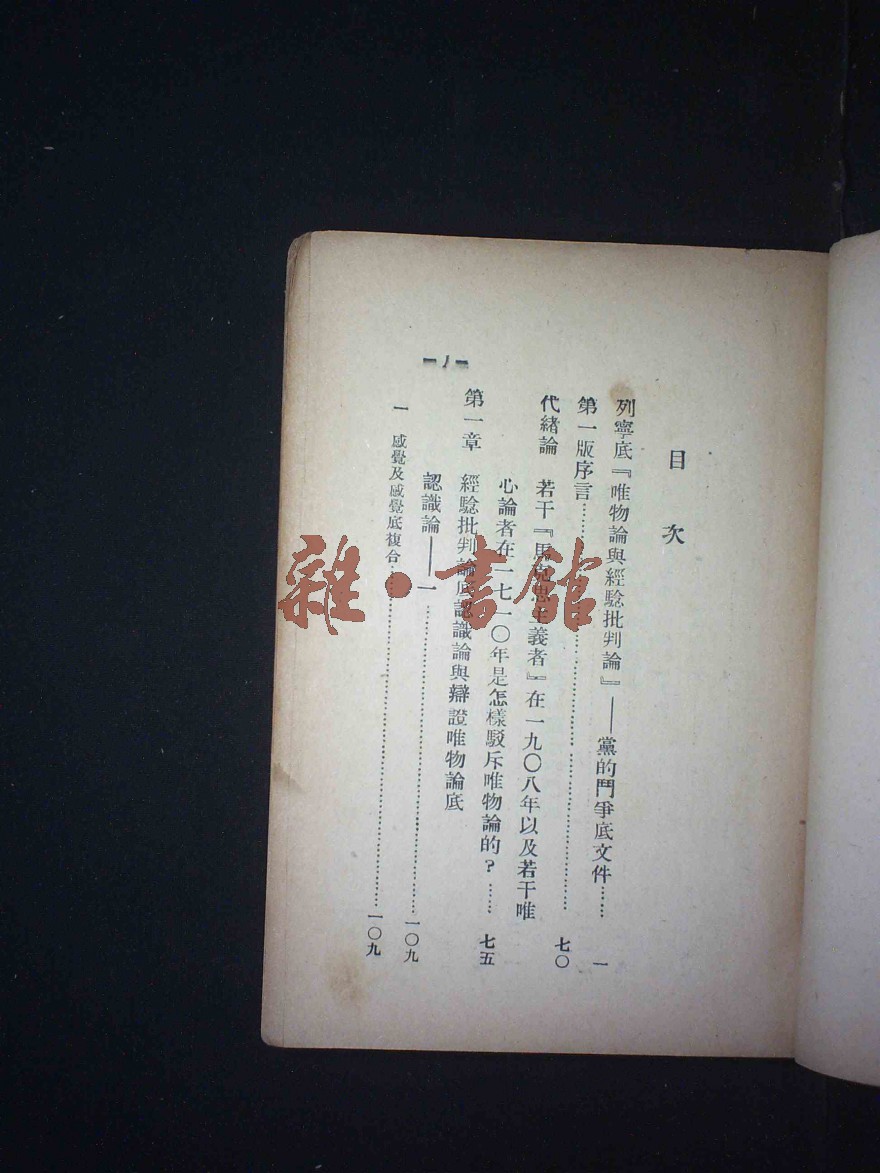 目次
列寧底『唯物論與經驗批判論』——黨的鬥爭底文件……一
第一版序言……七〇
代緒論　若干『馬克思主義者』在一九〇八年以及若干唯
心論者在一七一〇年是怎樣駁斥唯物論的？……七五
第一章　經驗批判論底認識論與辯證唯物論底
認識論——一……一〇九
一　感覺及感覺底複合……一〇九
雜·書館